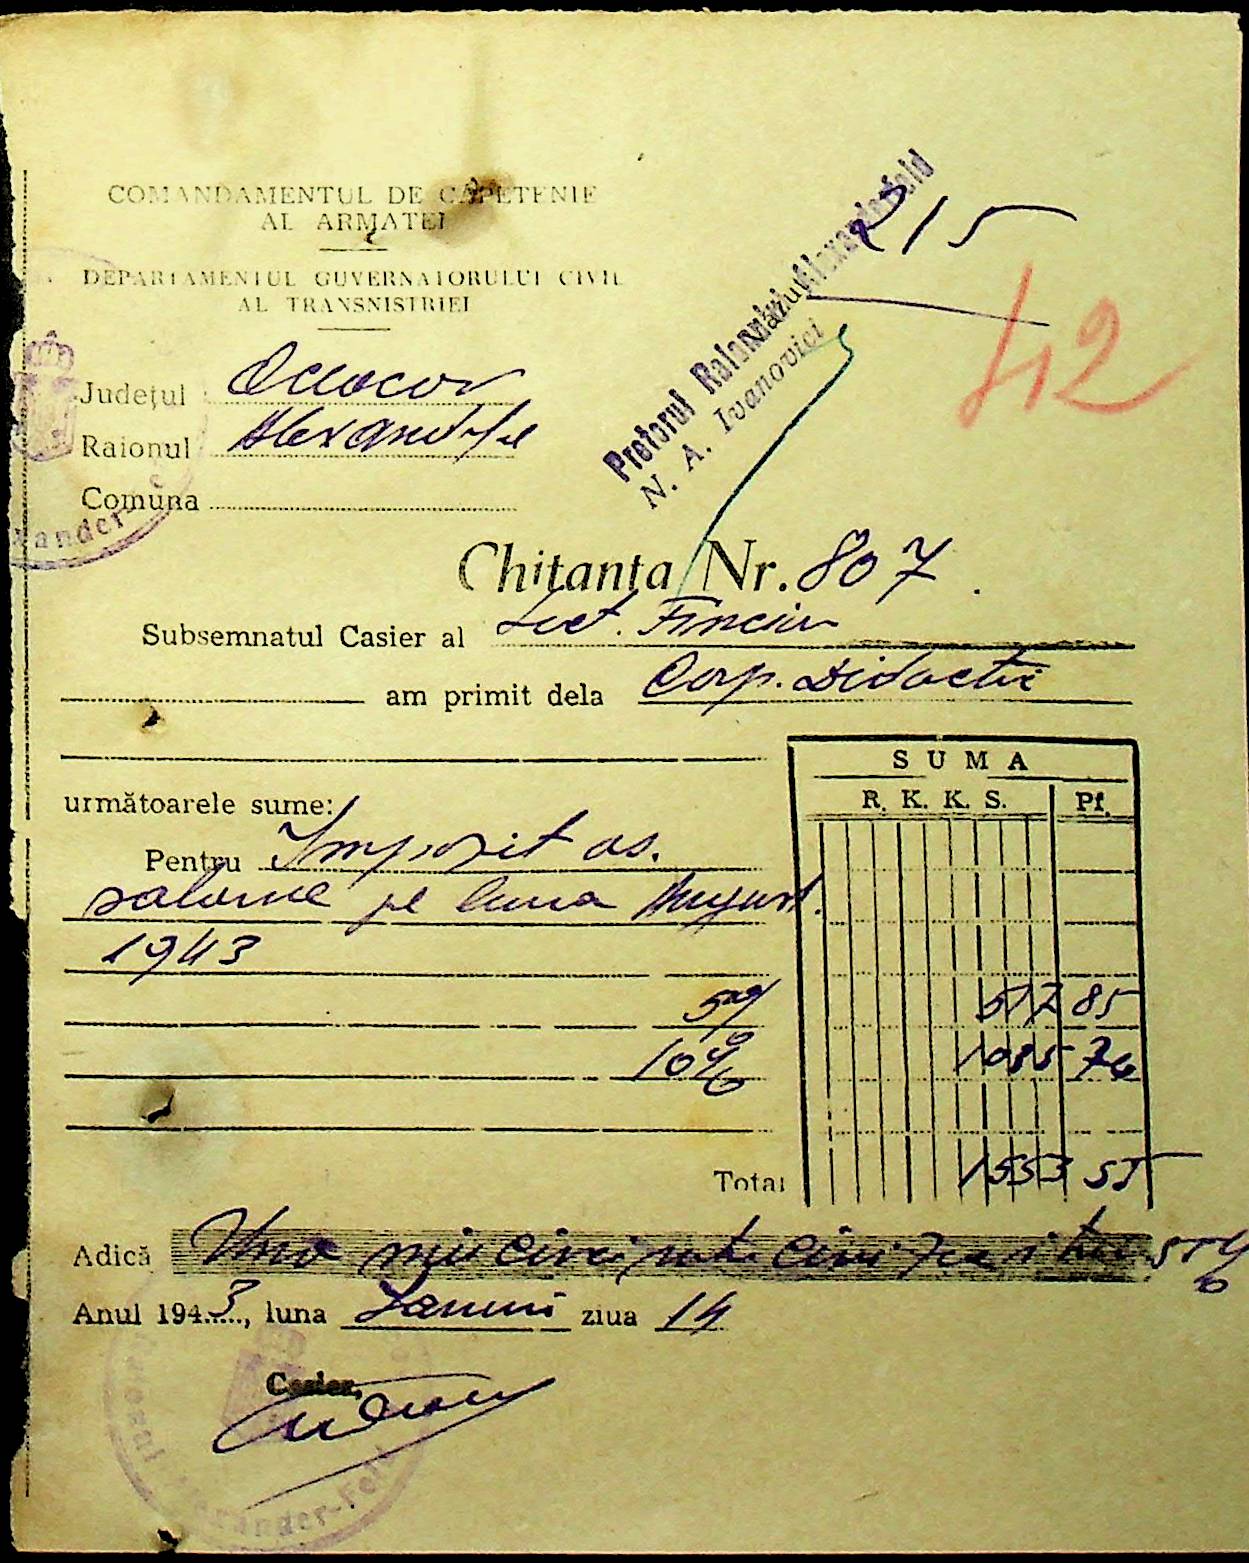 COMANDAMENTUL DE CAPETENIE
AL ARMATEI
DEPARTAMENTUL GUVERNATORULUI CIVIL
AL TRANSNISTRIEI
215
42
Pretorul Raionului Alexanderfeld
N. A. Ivanovici
Județul Oceacov
Raionul Alexandrfel
Comuna
Chitanța Nr. 807
Subsemnatul Casier al Sect. Financiar
am primit dela Corp. Didactic
următoarele sume:
Pentru Impozit as.
salarii pe luna August.
1943
SUMA
R. K. K. S. Pf.
5% 517 85
10% 1035 70
Total 1553 55
Adică Una mie cinci sute cinci zeci trei 55%
Anul 1943, luna Ianuari ziua 14
Casier,
Raionul Alexander-Feld